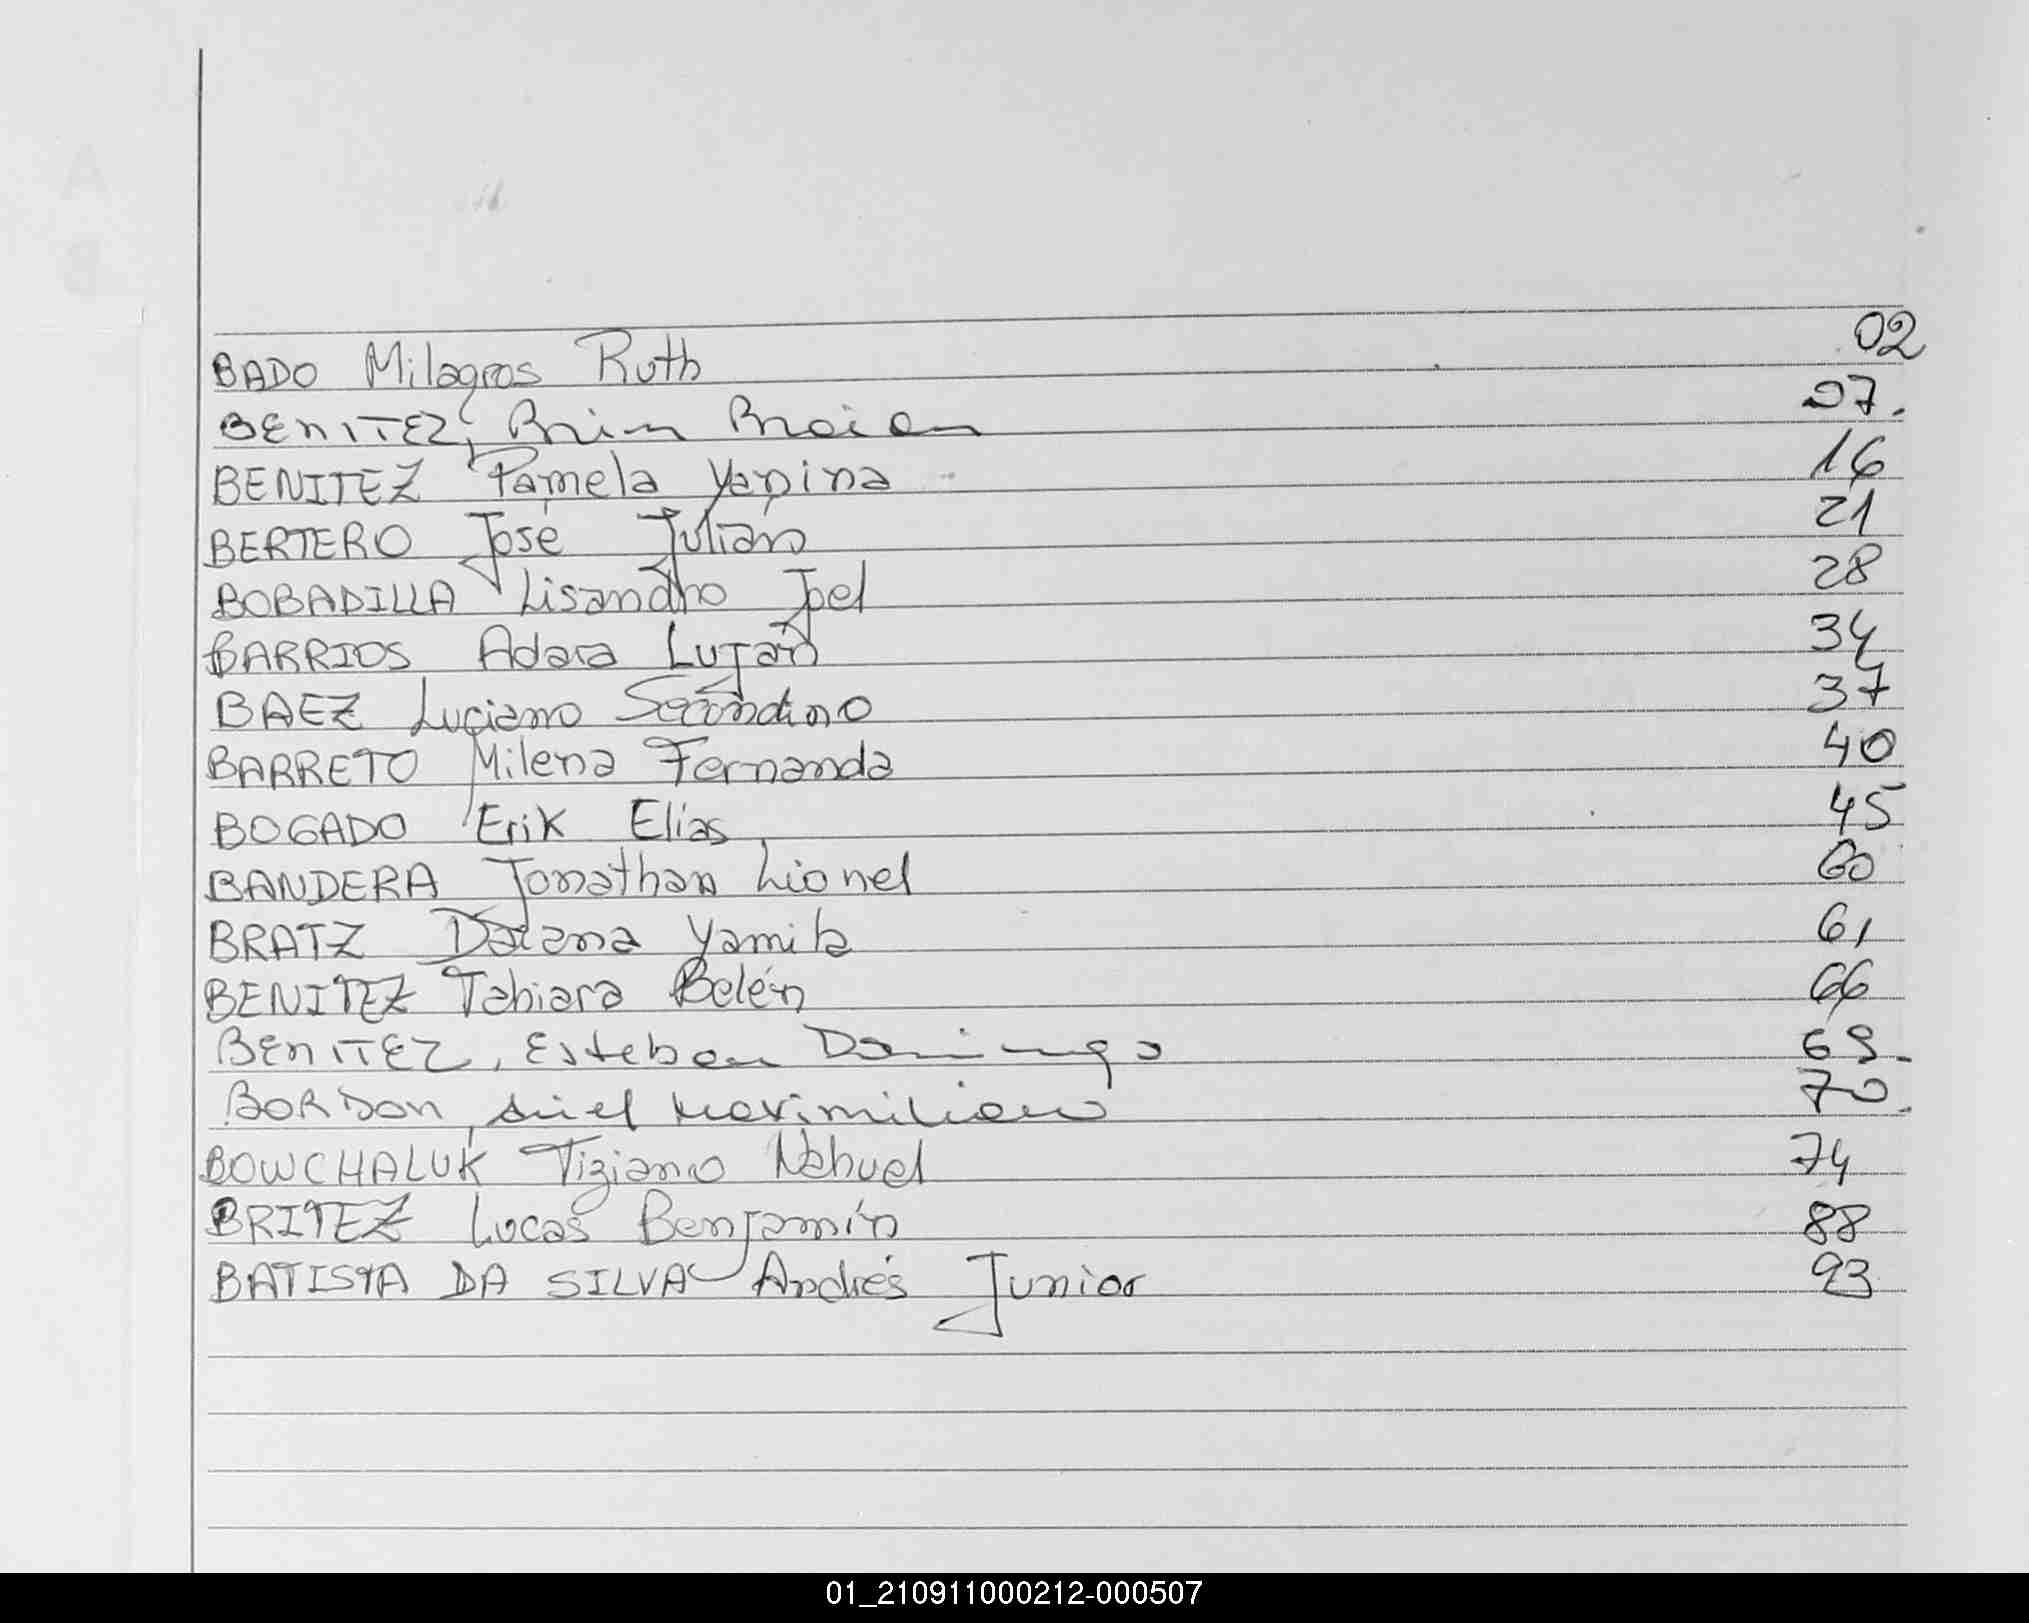 BADO Milagros Ruth 02
BENITEZ, Braian 07.
BENITEZ Pamela Yanina 16
BERTERO José Julian 21
BOBADILLA Lisandro Joel 28
BARRIOS Adara Luján 34
BAEZ Luciano Secundino 37
BARRETO Milena Fernanda 40
BOGADO Erik Elias 45
BANDERA Jonathan Lionel 60
BRATZ Daiana Yamila 61
BENITEZ Tahiara Belén 66
BENITEZ, Esteban Domingo 69.
BORDON, Maximiliano 70.
BOWCHALUK Tiziano Nahuel 74
BRITEZ Lucas Benjamín 88
BATISTA DA SILVA Andrés Junior 93
01_210911000212-000507